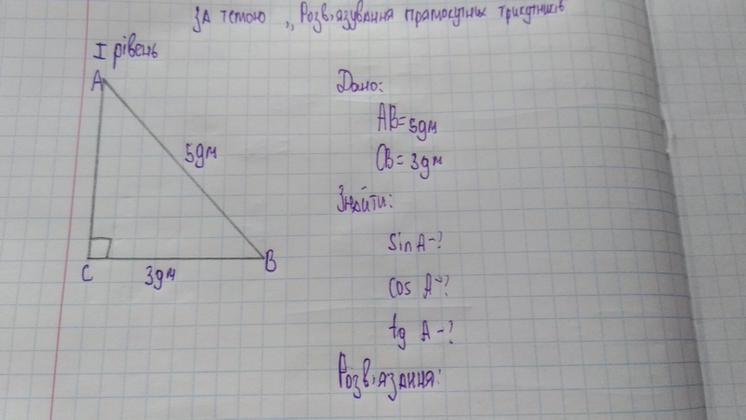 за темою ,, Розв'язування прямокутних трикутників
I рівень
A
5дм
C
3дм
B
Дано:
AB=5дм
CB=3дм
Знайти:
sin A-?
cos A-?
tg A-?
Розв'язання: